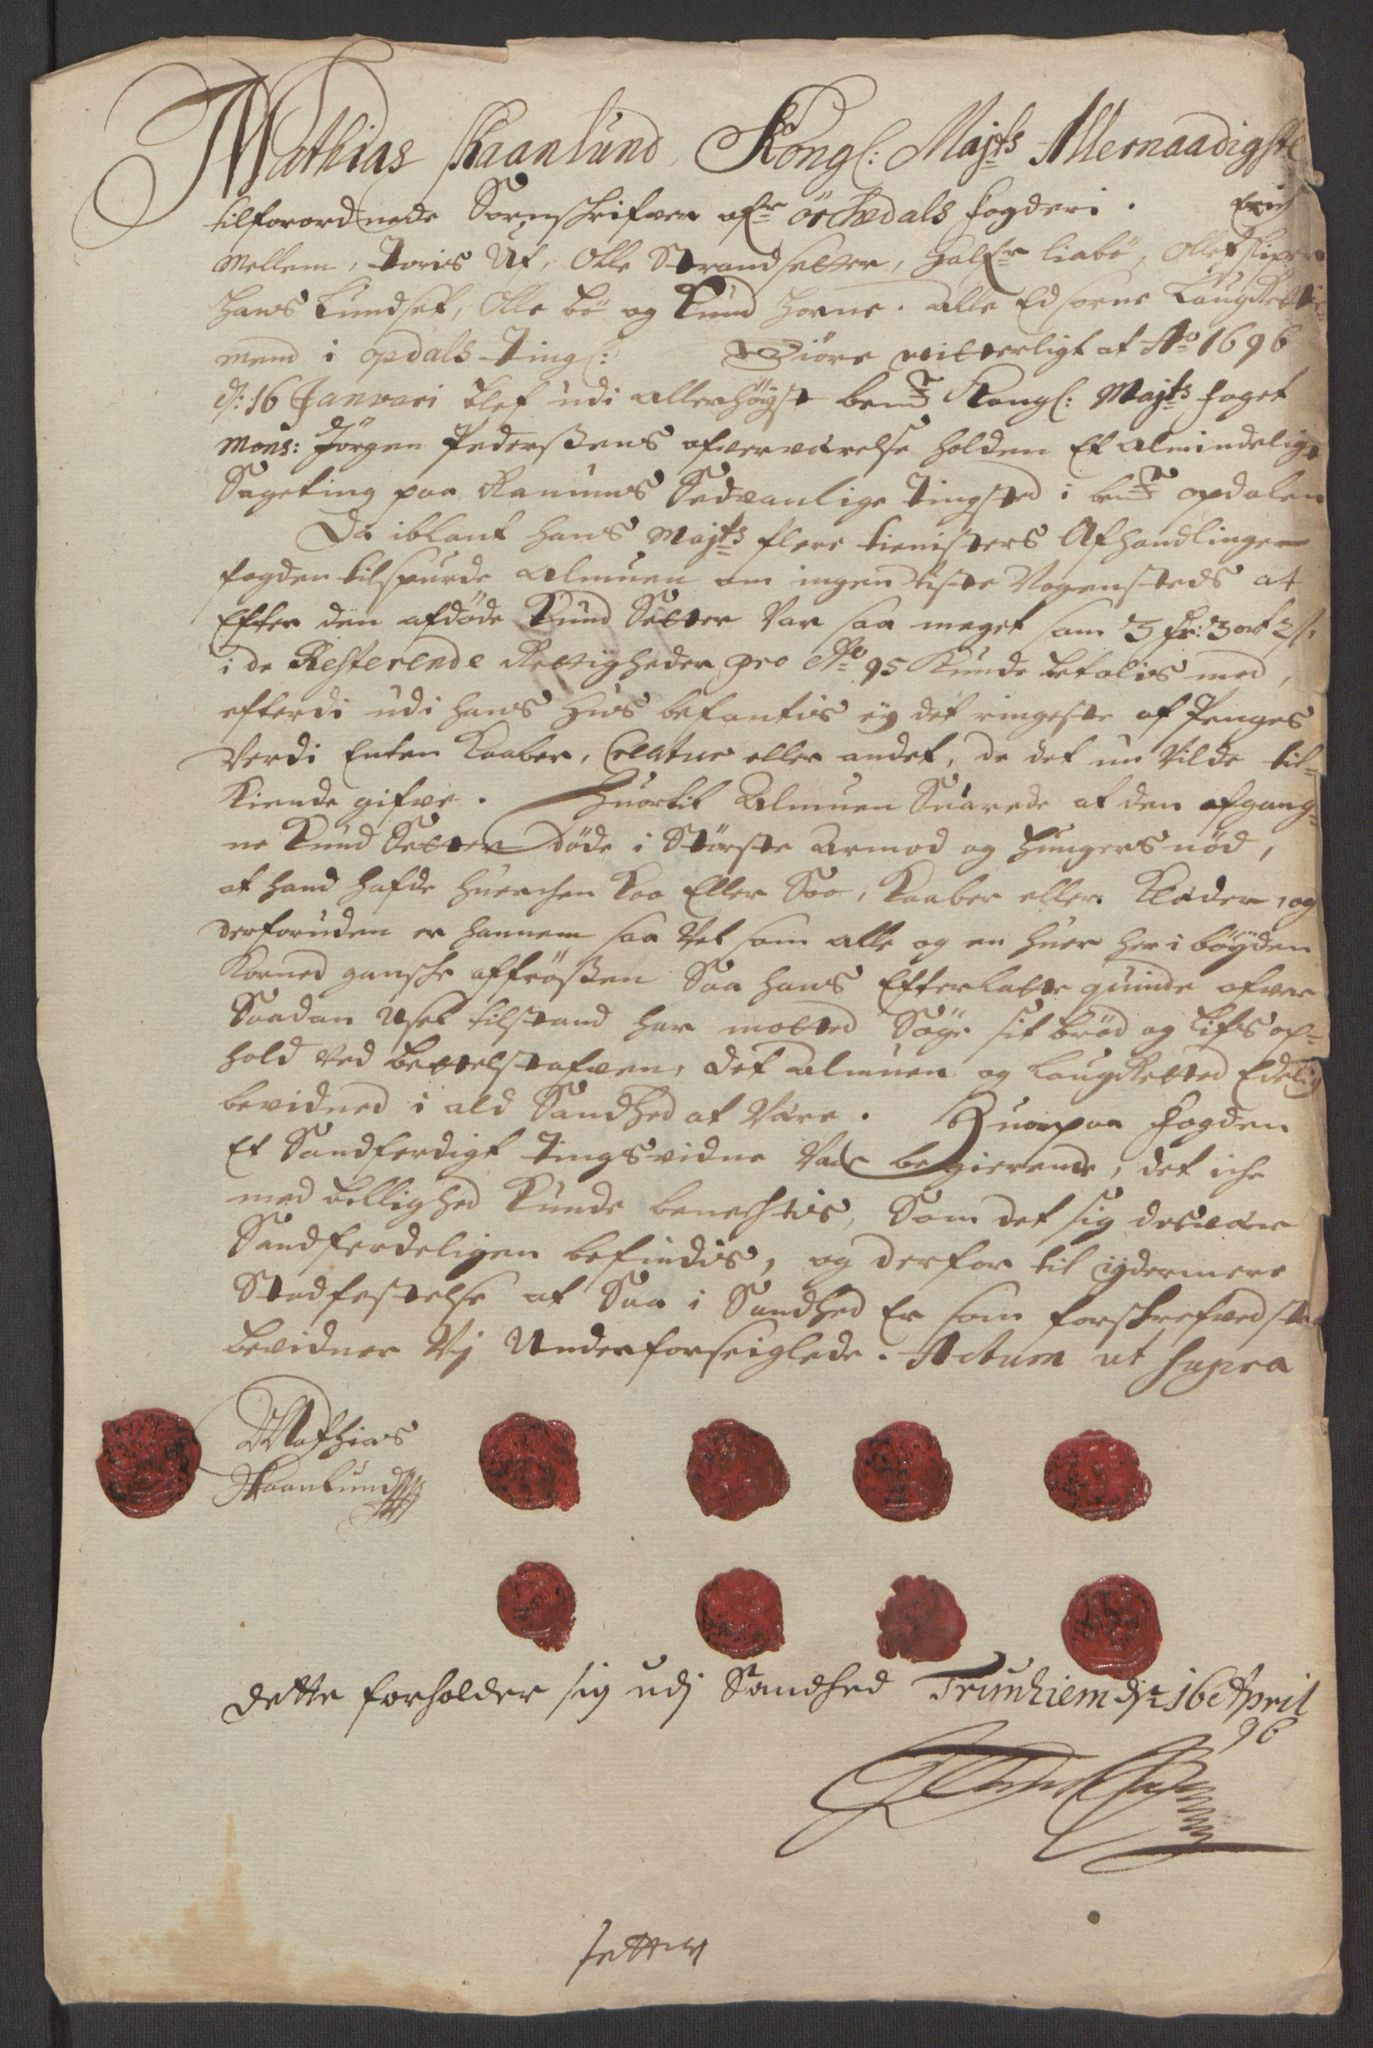 Mathias Skaanlund, Kongl: Majts Allernaadigste
tilforordnede Sorenschrifver ofr Örchedals fogderi. Erich
Mellem, Toris Uf, Olle Strandsetter, Halfr liabö, Olle
Hans Lundset, Olle bö og Knud Horne. alle Edsorne Laugrettis
mend i opdals Tingl: Giöre vitterligt at Ao 1696
d: 16 Janvari blef udi allerhöyst bemte Kongl: Majts foget
Mons: Jörgen Pederßens ofverværelse holden Et almindeligt
Sageting paa Ranums Sedvanlige Tingsted i bemte opdalen
Da iblant hans Majts flere tienisters Afhandlinger
fogden tilspurde Almuen om ingen viste Nogensteds at
Efter den afdöde Knud Setter var saa meget som 3 dr: 3 ort 2 s,
i de Resterende Rettigheder pro Ao 95 Kunde betalis med,
efterdi udi hans Huus befantis eij det ringeste af Penges
Verdi Enten Kaaber, Creatur eller andet, de det nu vilde til=
kiende gifve. Huortil Almuen Suarede at den afgang=
ne Knud Setter döde i Störste armod og Hungers nöd,
at hand hafde huerchen Koo Eller Soo, Kaaber eller Klæder, og
derforuden er hannem saa vel som alle og en huer her i böyden
Korned gansche affrößen Saa hans Efterlatte quinde ofver
Saadan Usel tilstand har motted Söge sit bröd og lifs op=
hold ved bettelstafven, det almuen og Laugretted Edelig
bevidned i ald Sandhed at Være. Huorpaa fogden
Et Sandferdigt Tingsvidne Var begierende, det iche
med billighed Kunde benechtis, Som det sig desver
Sandferdeligen befindis, og derfor til ydermere
Stadfestelse at Saa i Sandhed Er som forschrefved staar
bevidner Vj Underforseiglede. Actum ut supra
Mathias
Skaanlund
dette forholder sig udj Sandhed Trünhiem dr 16 April
96
Setter